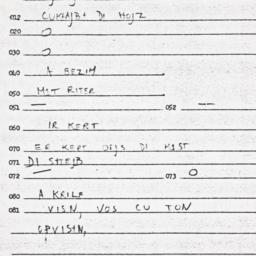 012 CUKLAJBN DI HOJZ
020 O
030 O
040 A BEZIM
050 MIT RITER
051 — 052 —
060 IR KERT
070 ER KERT OJS DI MIST
071 DI
072 — 073 O
080 A KRILE
081 VISN, VOS CU TON